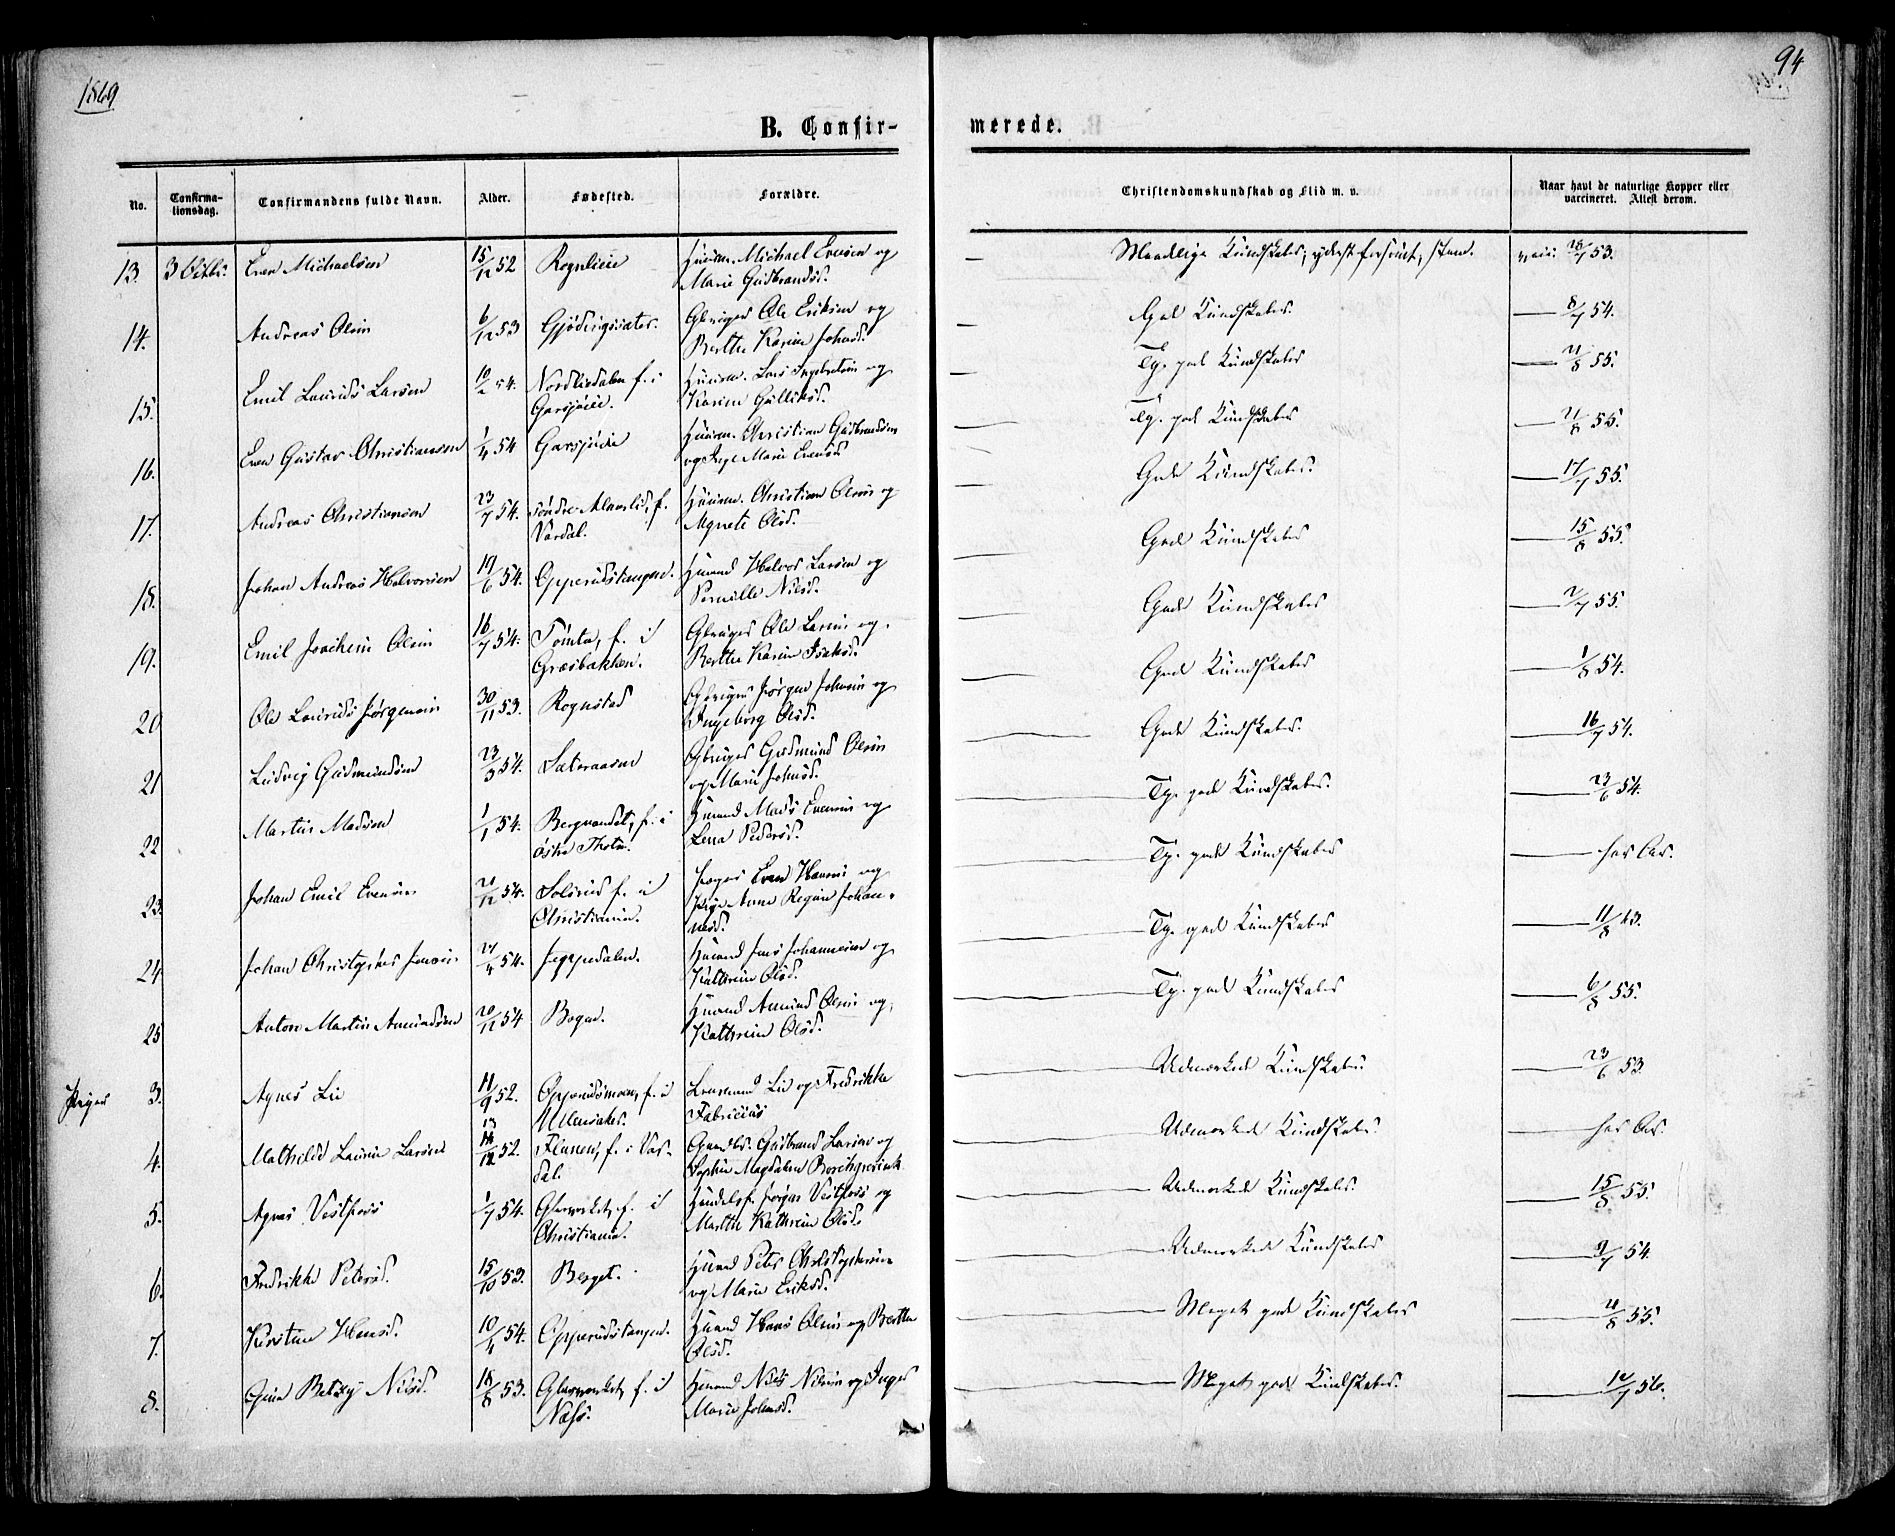 1869
94
B. Confir-
merede.
No.
Confirma-
tionsdag.
Confirmandens fulde Navn.
Alder.
Fødested.
Forældre.
Christendomskundskab og Flid m. v.
Naar havt de naturlige Kopper eller
vaccineret. Attest derom.
13. 3 Octbr. Even Michaelsen 15/12 52 Rognlieie Huusm. Michael Evensen og
Marie Gudbrandsd.
Kundskaber, yderst forsømt, vacc. 53.
14. Andreas Olsen 6/12 53 Gjødingsæter. Gbruger Ole Eriksen og
Berthe Karine Johnsd.
God Kundskaber. 8/7 54.
15. Emil Laurids Larsen 10/2 54. Nordliedalen f. i
Garsjøeie.
Huusm. Lars Ingebretsen og
Karine Gulliksd.
Tg. god Kundskaber 21/8 55.
16. Even Gustav Christiansen 1/4 54 Garsjøeie Huusm. Christian Gudbrandsen
og Inge Marie Evensd.
Tg. god Kundskaber 21/8 55.
17. Andreas Christiansen 23/7 54. søndre f.
Vardal.
Huusm. Christian Olsen og
Agnete Olsd.
Gode Kundskaber. 17/7 55.
18. Johan Andreas Halvorsen 19/6 54. Opperudstangen. Huusmd Halvor Larsen og
Pernille Nilsd.
God Kundskaber 15/8 55.
19. Emil Jochim Olsen 16/7 54. Tømte, f. i
Græsbakken.
Gbruger Ole Larsen og
Berthe Karine Isaksd.
Gode Kundskaber 2/7 55.
20 Ole Laurids Jørgensen 30/11 53. Rognstad Gbruger Jørgen Johnsen og
Ingeborg Olsd.
God Kundskaber 1/8 54.
21 Ludvig Gudmundsen 23/3 54. Sæteraasen Gbruger Gudmund Olsen
og Marie Johnsd.
Gode Kundskaber. 16/7 54.
22 Martin Madsen 1/1 54. Bergvandet, f. i
østre Thoten.
Huusmd Mads Evensen og
Lena Pedersd.
Tg. gode Kundskaber. 23/6 54.
23. Johan Emil Evensen 21/12 54. Solerud f. i
Christiania.
Even Hansen og
Pige Anne Regine Johan-
nesd.
Tg. gode Kundskaber har Ar.
24 Johan Christopher Jensen 21/4 54. Jeppedalen. Huusmd Jens Johannesen og
Kathrine Olsd.
Tg. god Kundskaber 11/8
25 Anton Martin Amundsen 20/12 54 Bogen. Huusmd Amund Olsen og
Kathrine Olsd.
Tg. god Kundskaber 6/8 55.
Piger
3. Agnes Lie 11/9 52. Opperudsmoen, f. i
Ullensaker.
Lensmand Lie og Fredrikke
Fabricius
Udmærkede Kundskaber 23/6 53.
4. Mathilde Laurine Larsen 13/12 52. f. i Var-
dal.
Gudbrand Larsen og
Sophie Magdalene Borchgrevink
Udmærkede Kundskaber. har Ar.
5. Agnes Vestfoss 1/7 54. Glasværket, f. i
Christiania.
Handelsf. Jørgen Vestfoss og
Marthe Kathrine Olsd.
Udmærkede Kundskaber. 15/8 55.
6. Fredrikke Petersd. 15/10 53. Berget. Huusmd Peter Christophersen
og Marie Eriksd.
Udmærkede Kundskaber 9/7 54.
7. Kirstine Hansd. 10/4 54. Opperudstangen. Huusmd Hans Olsen og Berthe
Olsd.
Meget gode Kundskaber 21/8 55.
8. Gina Betzy Nilsd. 18/8 53. Glasværket, f. i
Næss.
Huusmd Nils Nilsen og Inger
Marie Johnsd.
Meget gode Kundskaber. 12/7 56.